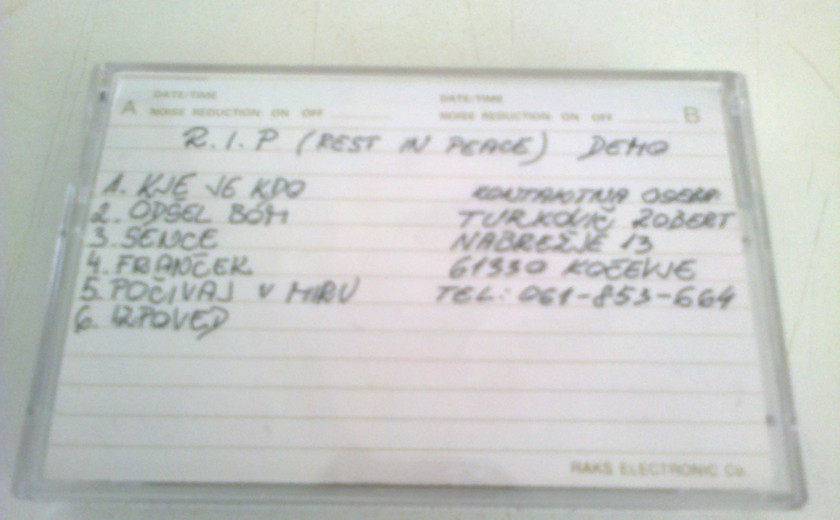 A DATE/TIME NOISE REDUCTION ON OFF
DATE/TIME NOISE REDUCTION ON OFF B
R.I.P (REST IN PEACE) DEMO
1. KJE JE KDO
2. ODŠEL BOM
3. SENCE
4. FRANČEK
5. POČIVAJ V MIRU
6. IZPOVED
KONTAKTNA OSEBA
TURKOVIČ ROBERT
NABREŽJE 13
61330 KOČEVJE
TEL: 061-853-664
RAKS ELECTRONIC Co.